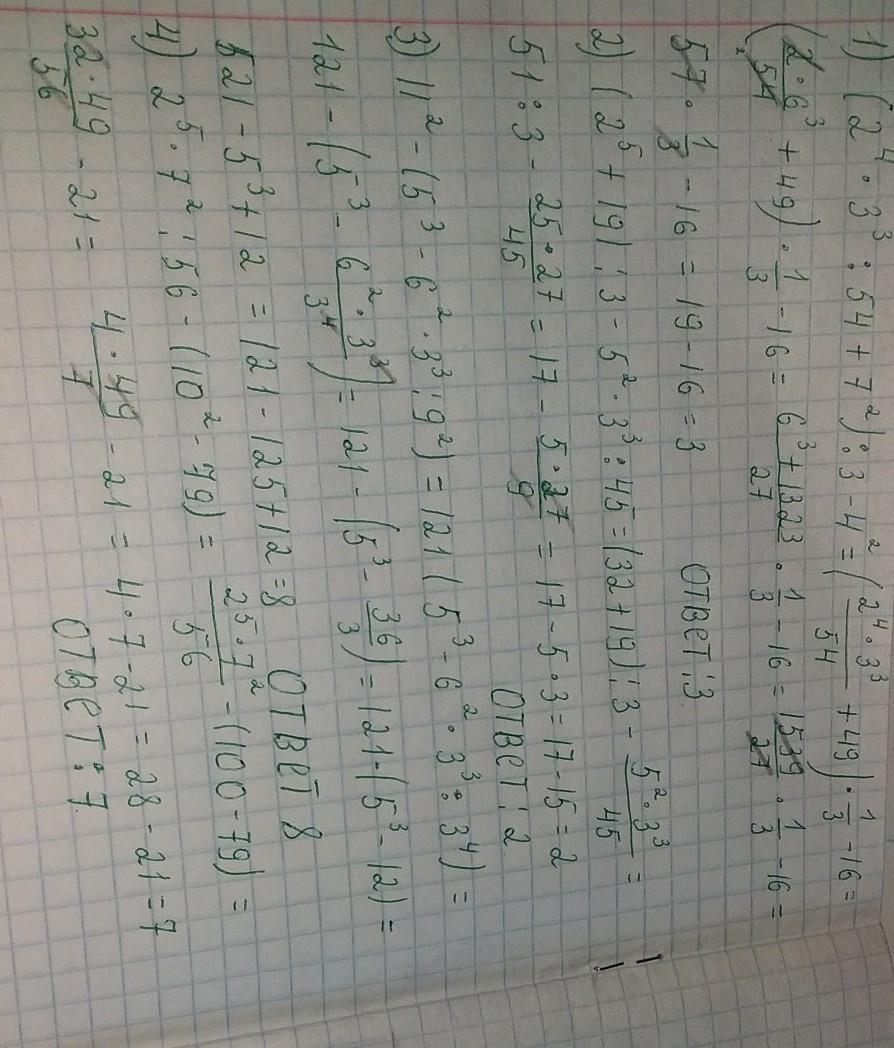 1) (2⁴·3³:54+7²):3-4²=(2⁴·3³/54+49)·1/3-16=
(2·6³/54+49)·1/3-16=6³+1323/27·1/3-16=1539/27·1/3-16=
57·1/3-16=19-16=3 ответ:3
2) (2⁵+19):3-5²·3³:45=(32+19):3-5²·3³/45=
51:3-25·27/45=17-5·27/9=17-5·3=17-15=2
ответ:2
3) 11²-(5³-6²·3³:9²)=121(5³-6²·3³:3⁴)=
121-(5³-6²·3³/3⁴)=121-(5³-36/3)=121-(5³-12)=
121-5³+12=121-125+12=8 ответ 8
4) 2⁵·7²:56-(10²-79)=2⁵·7²/56-(100-79)=
32·49/56-21=4·49/7-21=4·7-21=28-21=7
ответ:7